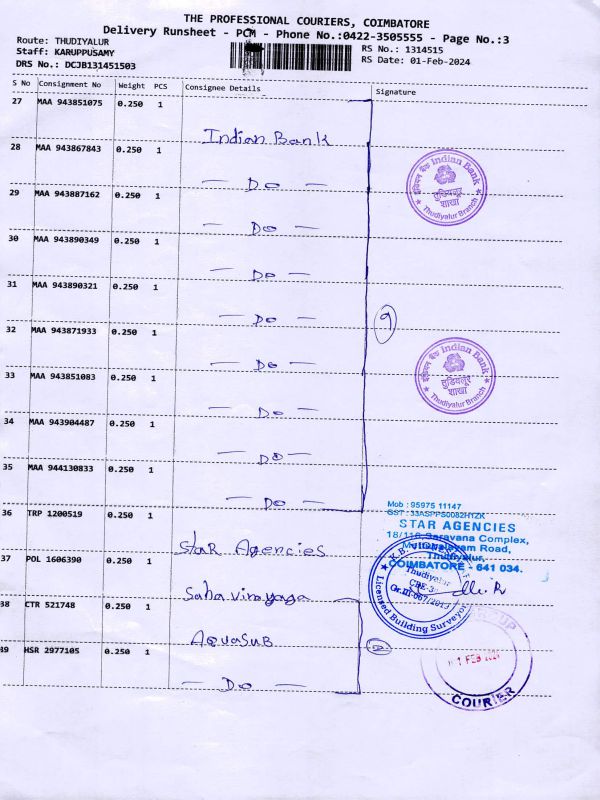 THE PROFESSIONAL COURIERS, COIMBATORE
Delivery Runsheet - PCM - Phone No.:0422-3505555 - Page No.:3
Route: THUDIYALUR
RS No.: 1314515
Staff: KARUPPUSAMY
RS Date: 01-Feb-2024
DRS No.: DCJB131451503
S No Consignment No Weight PCS Consignee Details Signature
27 MAA 943851075 0.250 1
Indian Bank
28 MAA 943867843 0.250 1
— Do —
29 MAA 943887162 0.250 1
— Do —
30 MAA 943890349 0.250 1
— Do —
31 MAA 943890321 0.250 1
— Do —
32 MAA 943871933 0.250 1
— Do —
33 MAA 943851083 0.250 1
— Do —
34 MAA 943904487 0.250 1
— Do —
35 MAA 944130833 0.250 1
— Do —
36 TRP 1200519 0.250 1
Star Agencies
37 POL 1606390 0.250 1
Saha Vinayaga
38 CTR 521748 0.250 1
AquaSub
39 HSR 2977105 0.250 1
— Do —
इंडियन बैंक Indian Bank
तुडियलूर
शाखा
Thudiyalur Branch
9
इंडियन बैंक Indian Bank
तुडियलूर
शाखा
Thudiyalur Branch
Mob : 95975 11147
GST : 33ASPPS0082H1ZK
STAR AGENCIES
18/116, Saravana Complex,
Road,
Thudiyalur,
COIMBATORE - 641 034.
Thudiyalur
Gr.III-067/2013
Licensed Building Surveyor
FEB 2024
COURIER